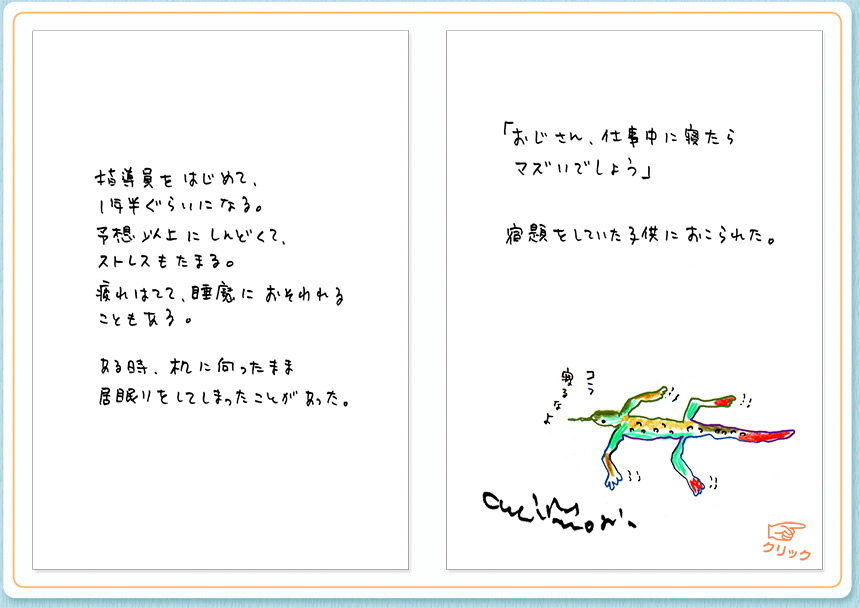 指導員をはじめて、
1年半ぐらいになる。
予想以上にしんどくて、
ストレスもたまる。
疲れはてて、睡魔におそわれる
こともある。
ある時、机に向ったまま
居眠りをしてしまったことがあった。
「おじさん、仕事中に寝たら
マズいでしょう」
宿題をしていた子供におこられた。
コラ
寝るなよ
クリック